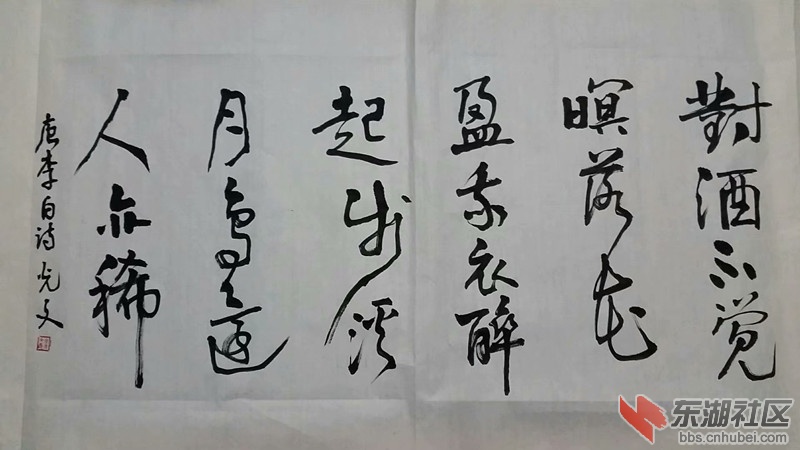 對酒不觉
暝落花
盈我衣醉
起步溪
月鳥還
人亦稀
唐李白诗 光文
东湖社区
bbs.cnhubei.com